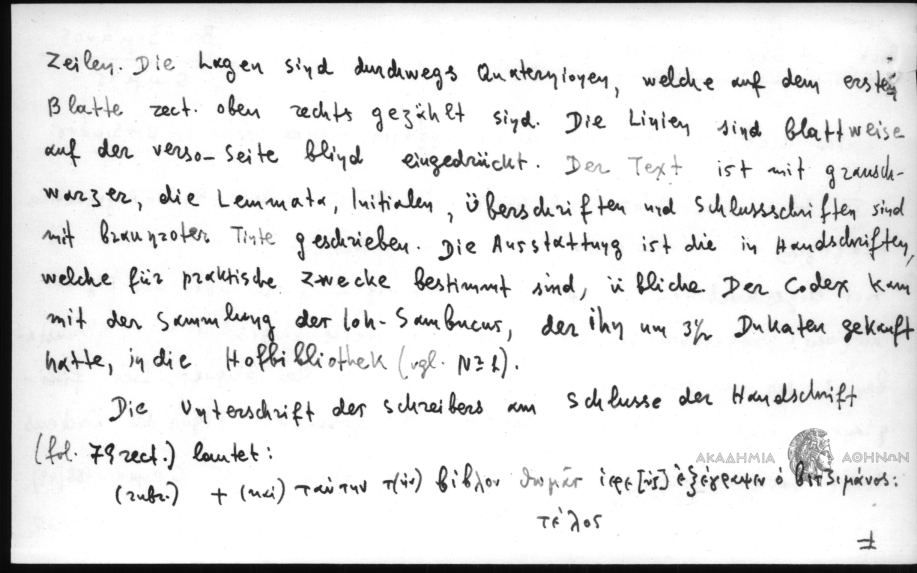 Zeilen. Die Lagen sind durchwegs Quaternionen, welche auf dem ersten
Blatte rect. oben rechts gezählt sind. Die Linien sind blattweise
auf der verso-Seite blind eingedrückt. Der Text ist mit grausch-
warzer, die Lemmata, Initialen, Überschriften und Schlussschriften sind
mit braunroter Tinte geschrieben. Die Ausstattung ist die in Handschriften,
welche für praktische Zwecke bestimmt sind, übliche. Der Codex kam
mit der Sammlung der Joh. Sambucus, der ihn um 3½ Dukaten gekauft
hatte, in die Hofbibliothek (vgl. N= 1).
Die Unterschrift des Schreibers am Schlusse der Handschrift
(fol. 79 rect.) lautet:
(rubr.) + (καὶ) ταύτην τ(ὴν) βίβλον θωμᾶς ἱερε[ὺς] ἐξέγραψεν ὁ βιτζιμάνος:
τέλος
ΑΚΑΔΗΜΙΑ ΑΘΗΝΩΝ